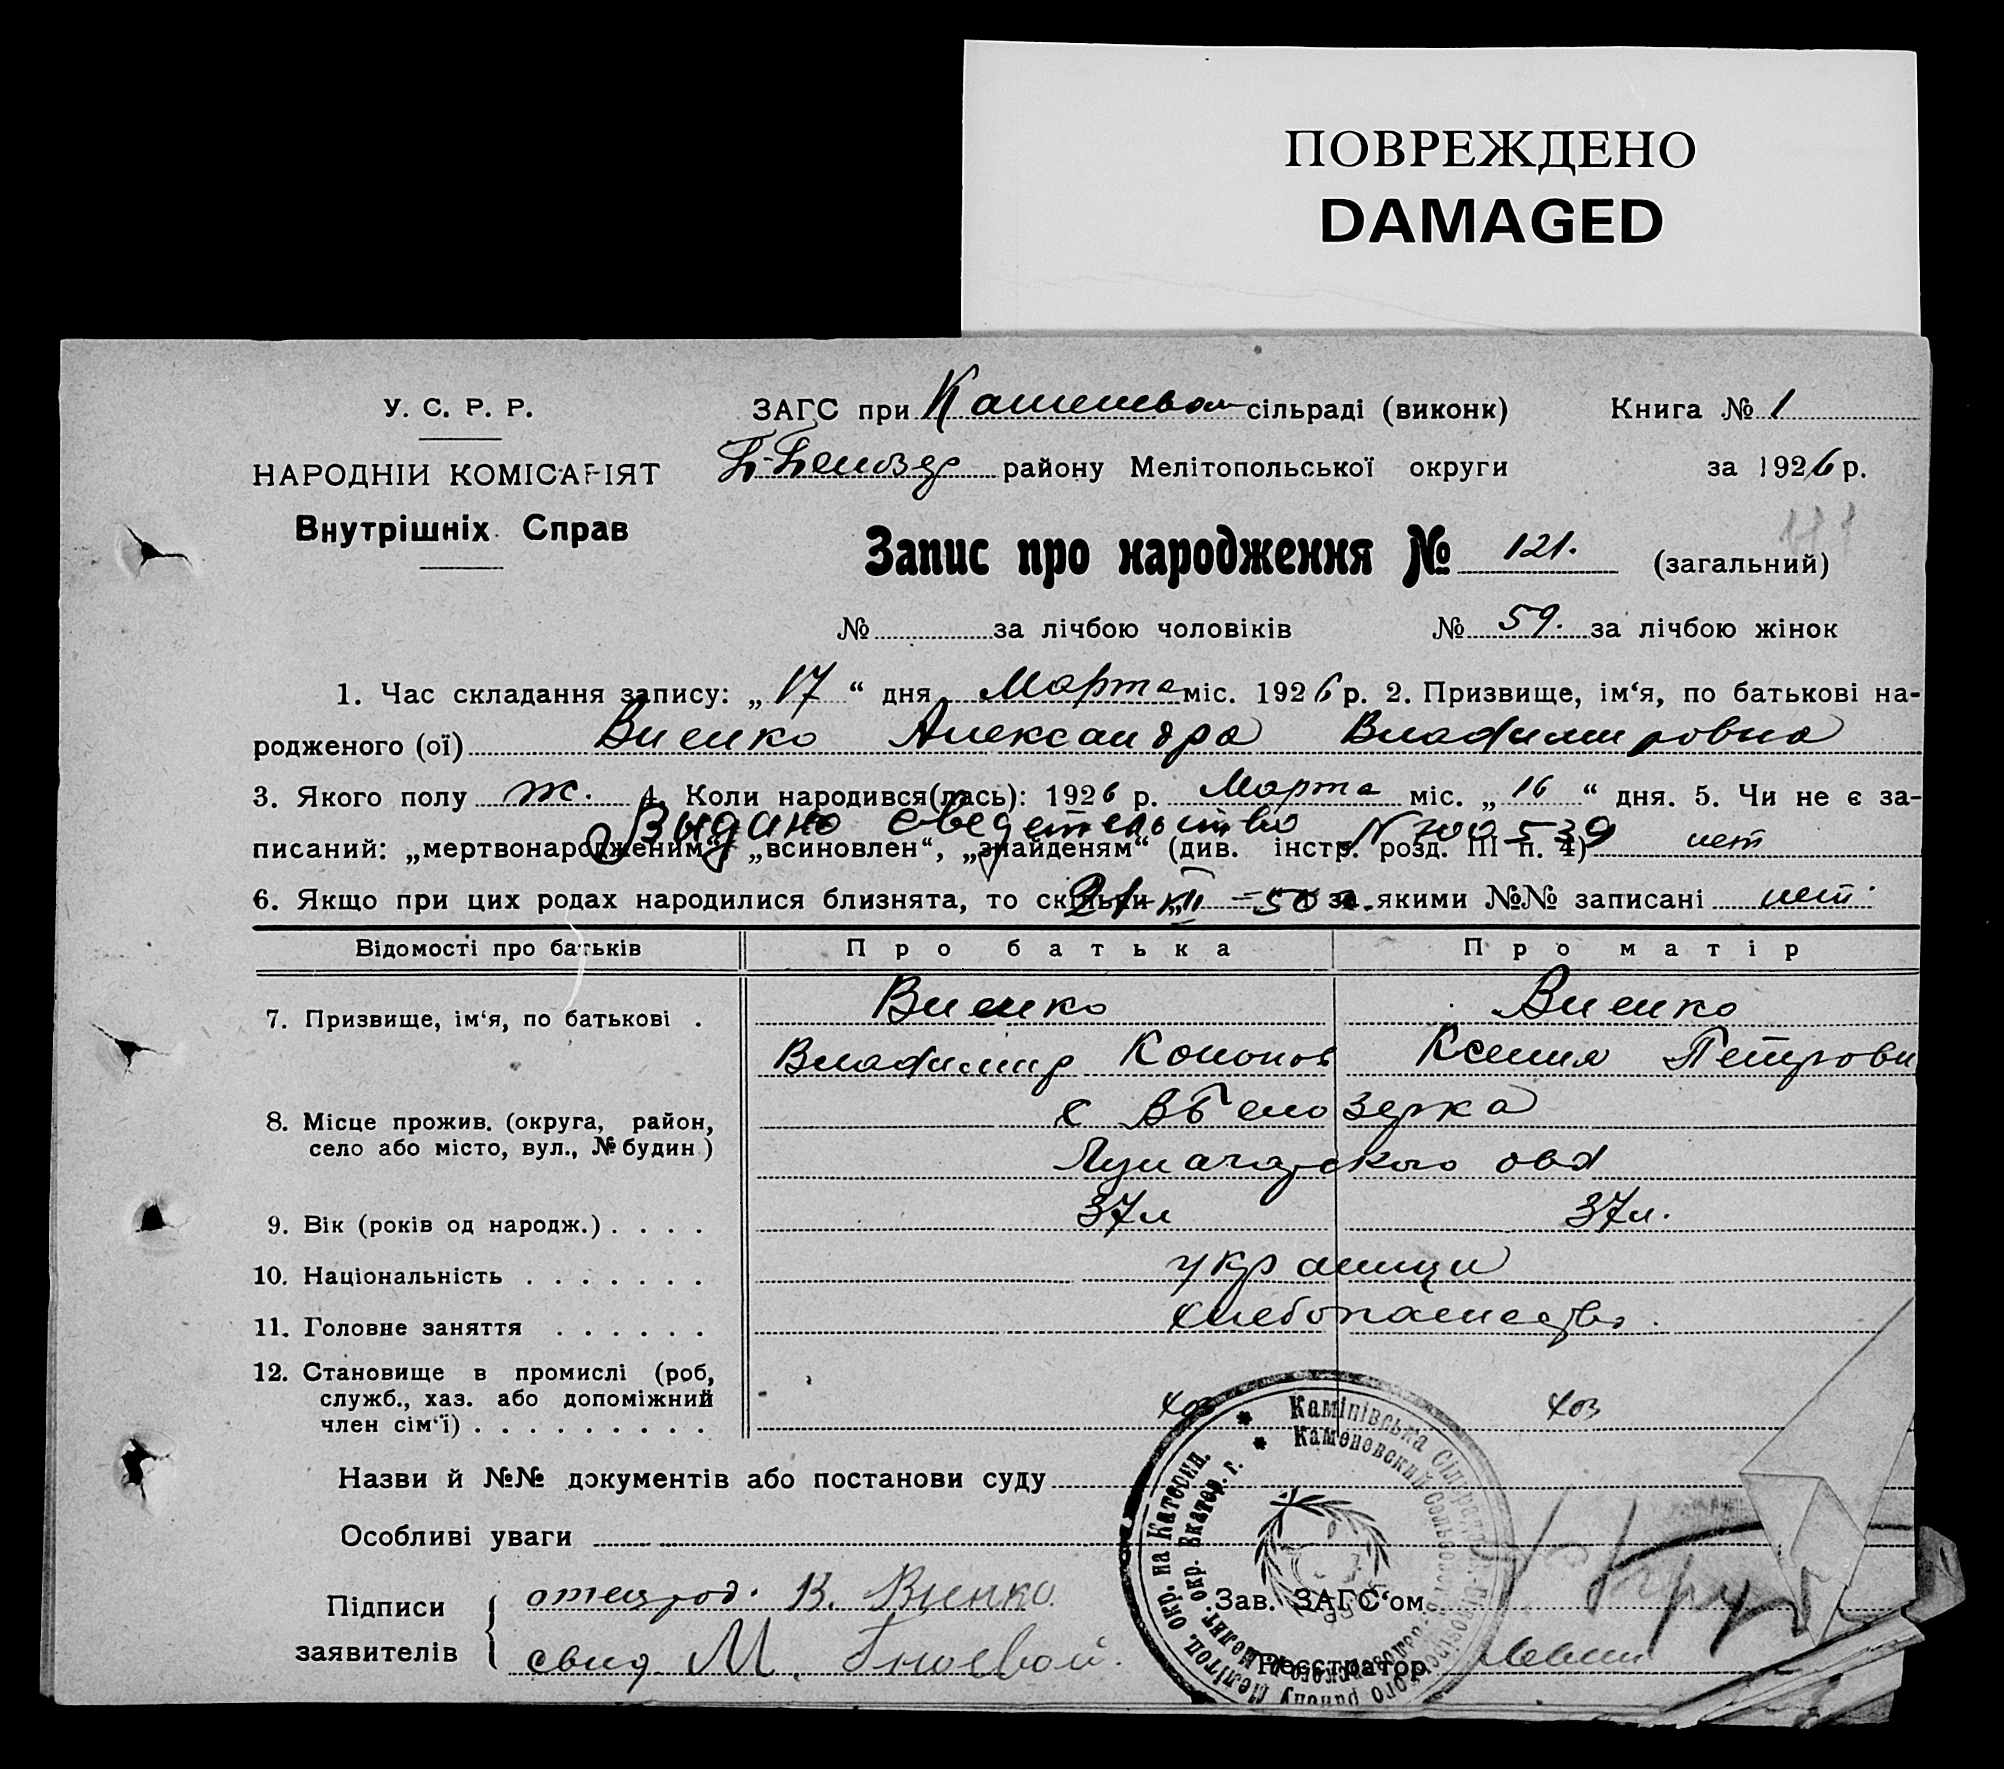 ПОВРЕЖДЕНО
DAMAGED
У. С. Р. Р.
НАРОДНІЙ КОМІСАРІЯТ
Внутрішніх Справ
ЗАГС при Каменском сільраді (виконк) Книга № 1
В-Белозер району Мелітопольської округи за 1926 р.
Запис про народження № 121. (загальний)
№ за лічбою чоловіків № 59. за лічбою жінок
1. Час складання запису: „ 17 “ дня Марта міс. 1926 р. 2. Призвище, ім‘я, по батькові на-
родженого (ої) Виенко Александра Владимировна
3. Якого полу ж. 4. Коли народився(лась): 1926 р. Марта міс. „ 16 “ дня. 5. Чи не є за-
Выдано сведетельство
писаний: „мертвонародженим“, „всиновлен“, „знайденям“ (див. інстр. розд. III п. 4) нет
6. Якщо при цих родах народилися близнята, то скільки якими №№ записані нет
Відомості про батьків Про батька Про матір
7. Призвище, ім‘я, по батькові . Виенко Виенко
Владимир Кононов Ксения Петровн
8. Місце прожив. (округа, район, с ВБелозерка
село або місто, вул., № будин.)
Луначарского
9. Вік (років од народж.) . . . . 37л 37л.
10. Національність . . . . . . . украинци
11. Головне заняття . . . . . . хлебопашество.
12. Становище в промислі (роб,
служб., хаз. або допоміжний
член сім‘ї) . . . . . . . . . хоз хоз
Назви й №№ документів або постанови суду
Особливі уваги
Підписи
заявителів
В. Виенко.
свид М.
Зав. ЗАГС‘ом
Реєстратор
Каменовский